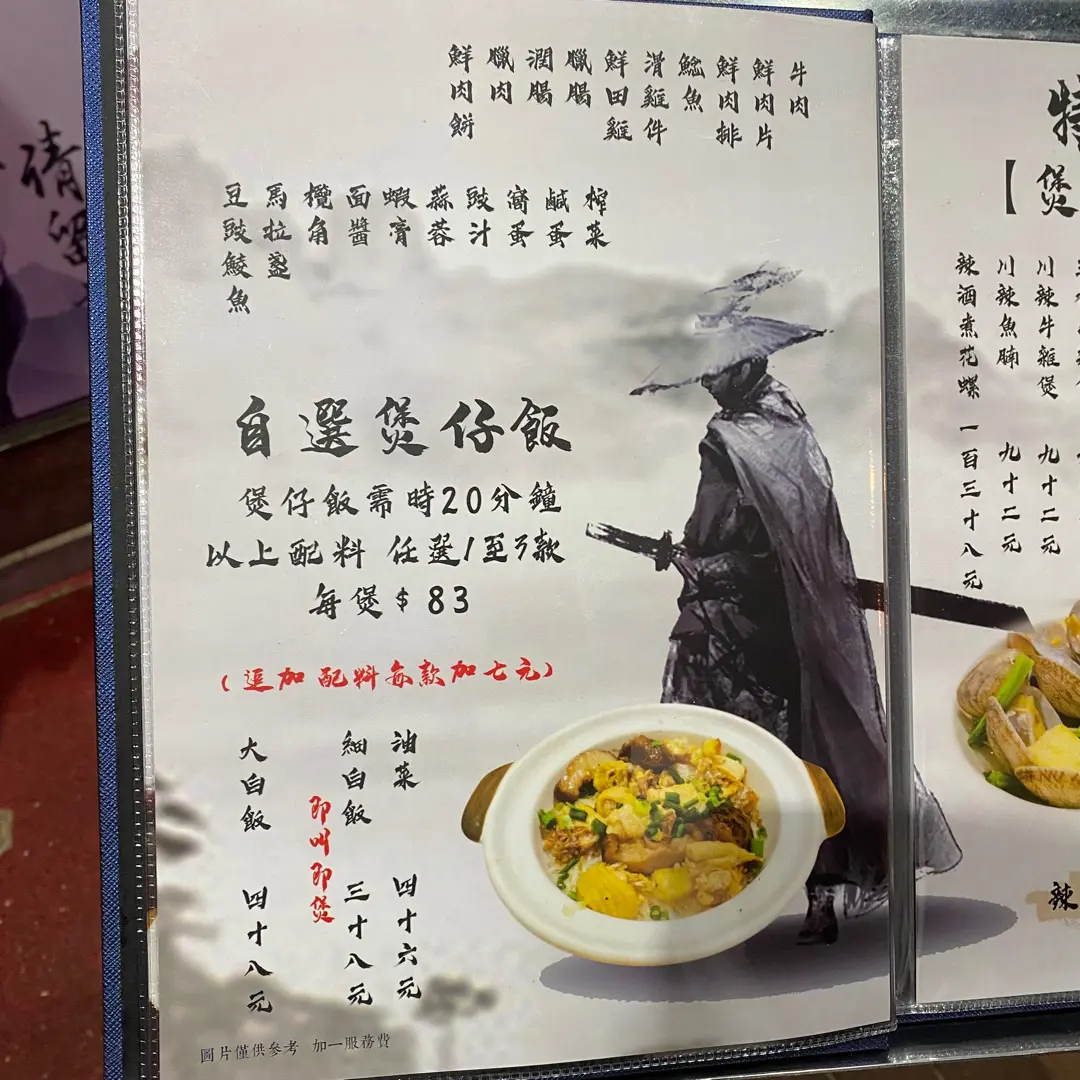 牛肉
鮮肉片
鮮肉排
鯰魚
滑雞件
鮮田雞
臘腸
潤腸
臘肉
鮮肉餅
榨菜
鹹蛋
窩蛋
豉汁
蒜蓉
蝦膏
面醬
欖角
馬拉盞
豆豉鯪魚
自選煲仔飯
煲仔飯需時20分鐘
以上配料 任選1至3款
每煲$83
(逗加配料每款加七元)
油菜 四十六元
細白飯 三十八元
即叫即煲
大白飯 四十八元
圖片僅供參考 加一服務費
特
【煲
川辣牛雜煲 九十二元
川辣魚腩 九十二元
辣酒煮花螺 一百三十八元
辣